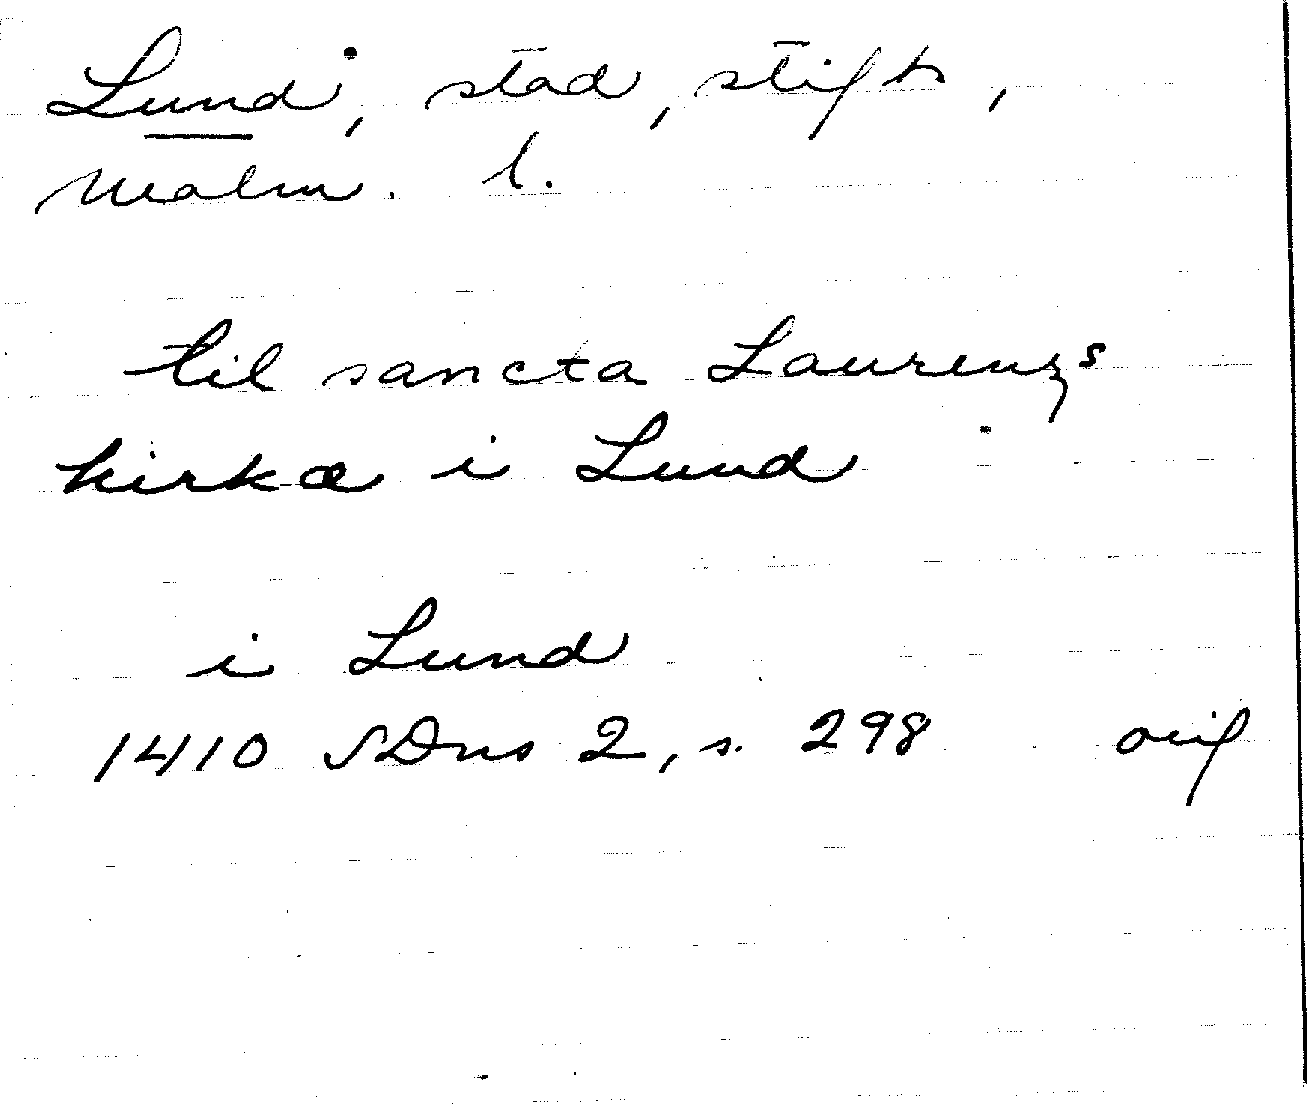 Lund, stad, stift,
Malm. l.
til sancta Laurenzs
kirkæ i Lund
i Lund
1410 SDns 2, s. 298 orig